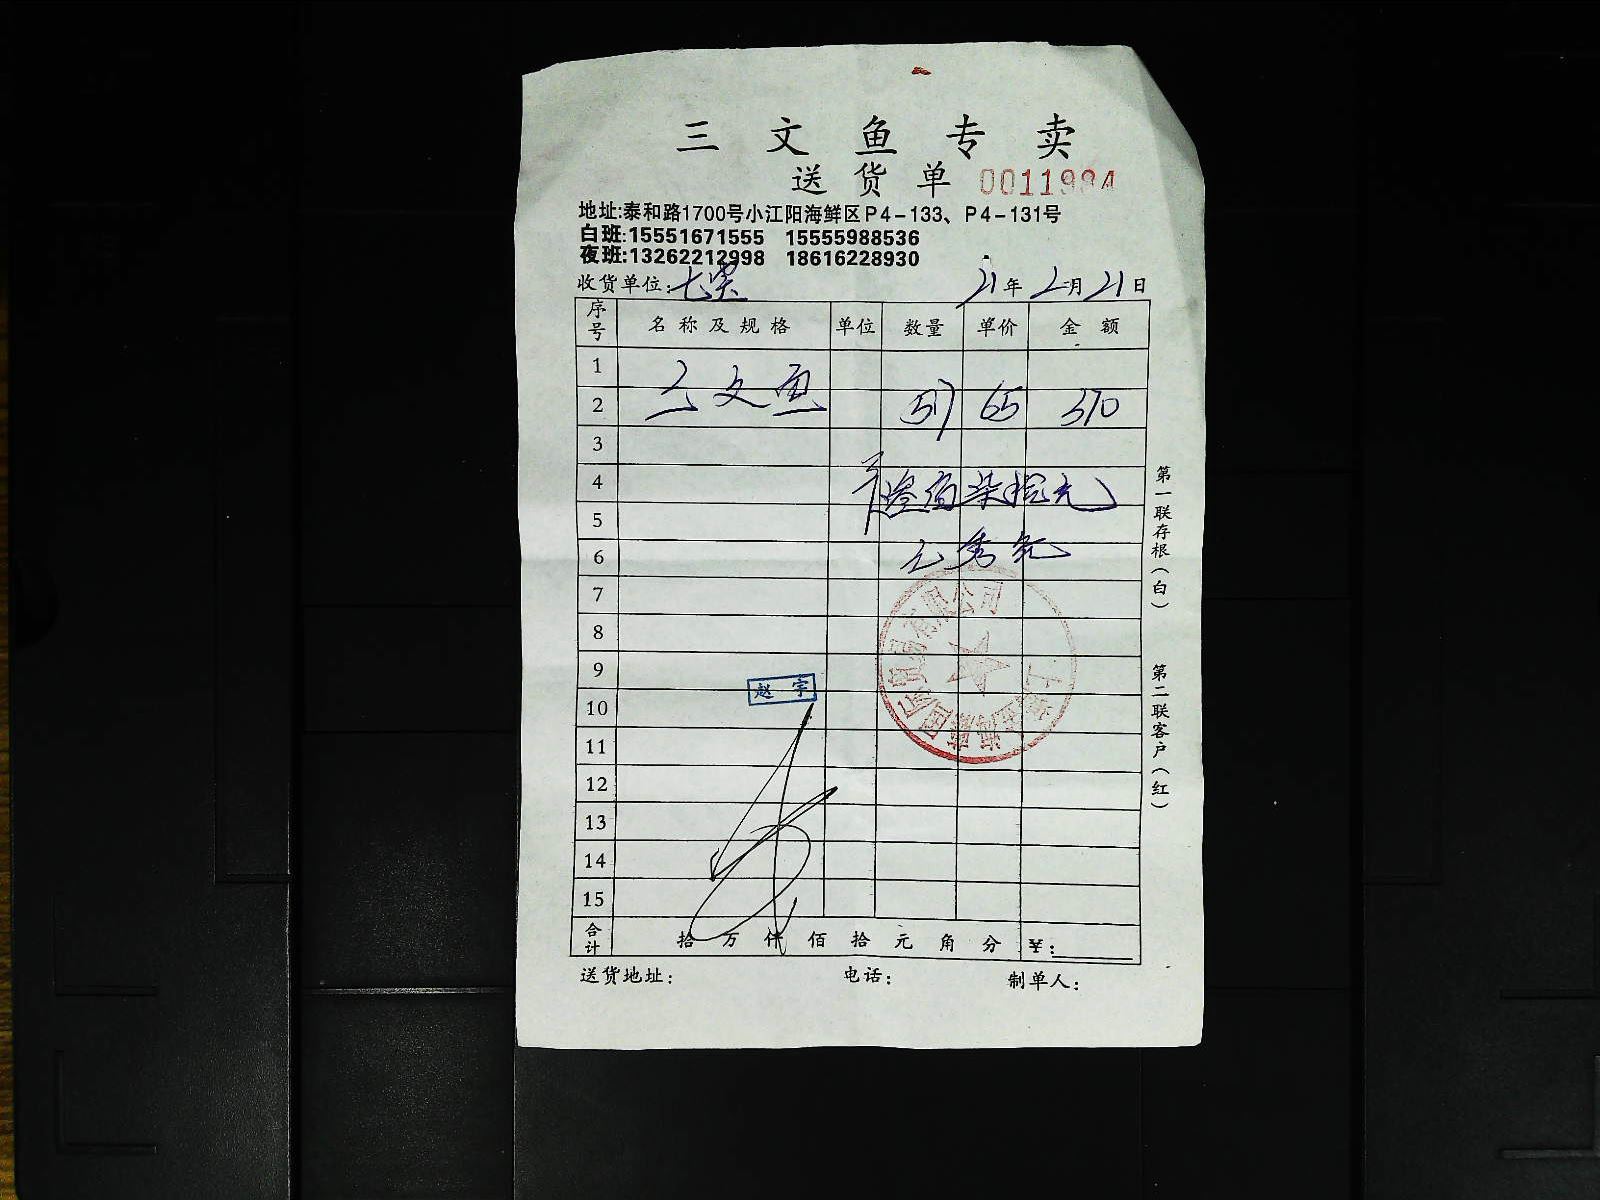 三文鱼专卖
送货单 0011984
地址:泰和路1700号小江阳海鲜区P4-133、P4-131号
白班:15551671555 15555988536
夜班:13262212998 18616228930
收货单位: 21年2月21日
序号 名称及规格 单位 数量 单价 金额
1 三文鱼
2 57 65 370
3
4 叁佰柒拾元
5
6
7
8
9
赵宇
10
11
12
13
14
15
合计 拾万仟佰拾元角分 ¥:
送货地址: 电话: 制单人:
第一联存根(白)
第二联客户(红)
有限公司